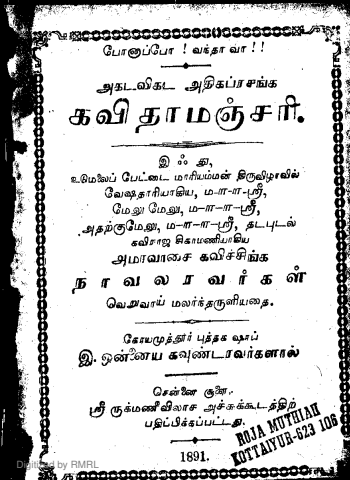 போனாப்போ ! வந்தா வா ! !
அகடவிகட அதிகப்ரசங்க
கவிதாமஞ்சரி.
இஃது,
உடுமலைப் பேட்டை மாரியம்மன் திருவிழாவில்
வேஷதாரியாகிய, ம-ள-ள-ஸ்ரீ,
மேலு மேலு, ம-ள-ள-ஸ்ரீ,
அதற்குமேலு, ம-ள-ள-ஸ்ரீ, தடபுடல்
கவிராஜ சிகாமணியாகிய
அமாவாசை கவிச்சிங்க
நாவலரவர்கள்
வெறுவாய் மலர்ந்தருளியதை.
கோயமுத்தூர் புத்தக ஷாப்
இ. ஒன்னைய கவுண்டரவர்களால்
சென்னை சூளை,
ஸ்ரீ ருக்மணிவிலாச அச்சுக்கூடத்திற்
பதிப்பிக்கப்பட்டது.
1891.
ROJA MUTHIAH
KOTTAIYUR-623 106
Digitized by RMRL